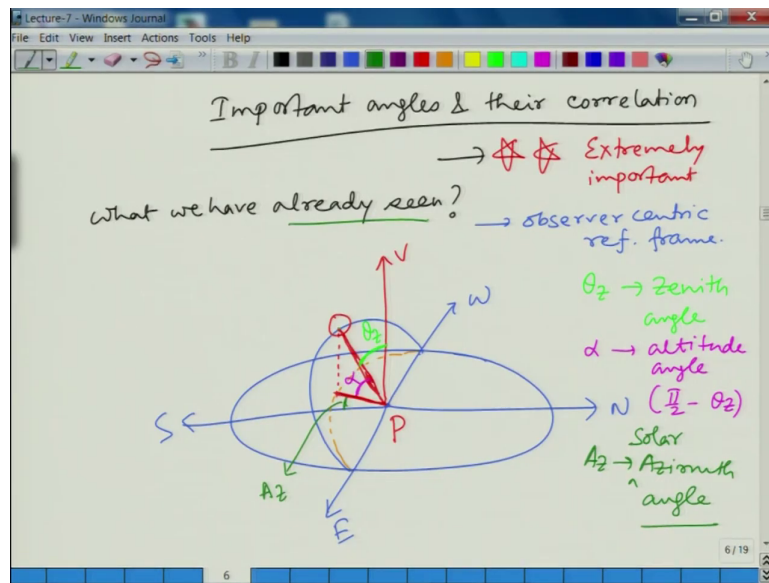 Lecture-7 - Windows Journal
File Edit View Insert Actions Tools Help
B I
Important angles & their correlation
→ ☆ ☆ Extremely
important
What we have already seen?
→ observer centric
ref. frame.
V
W
θz
α
S
N
P
Az
E
θz → Zenith
angle
α → altitude
angle
(π/2 - θz)
Solar
Az → Azimuth
^ angle
6 / 19
6